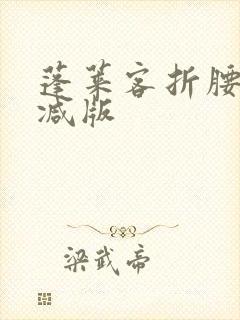 蓬莱客折腰
减版
梁武帝